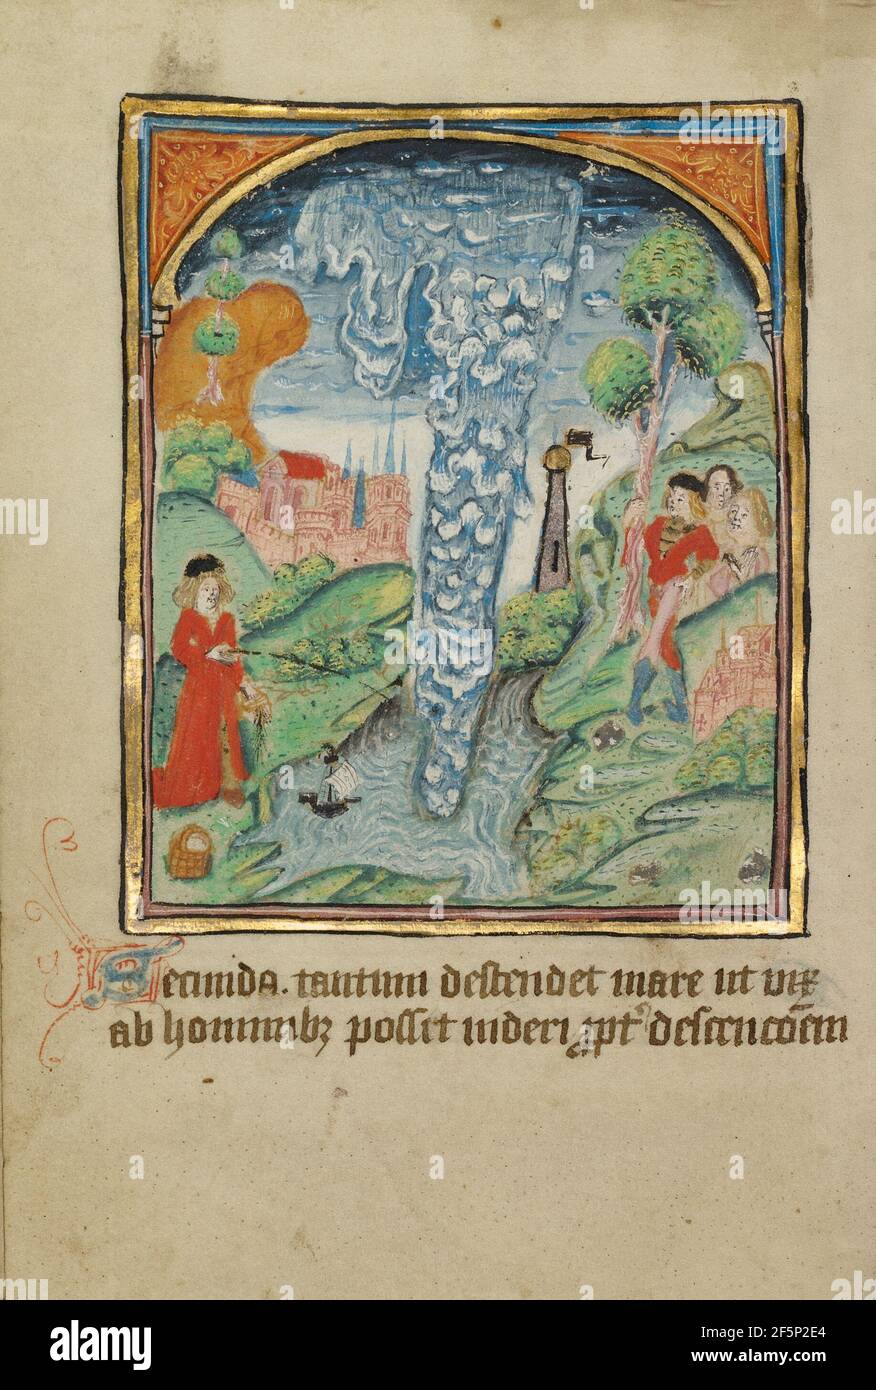 Secunda. tantum descendet mare ut vix
ab hominibz possit inderi ꝓpt descencoem
alamy
Image ID: 2F5P2E4
www.alamy.com